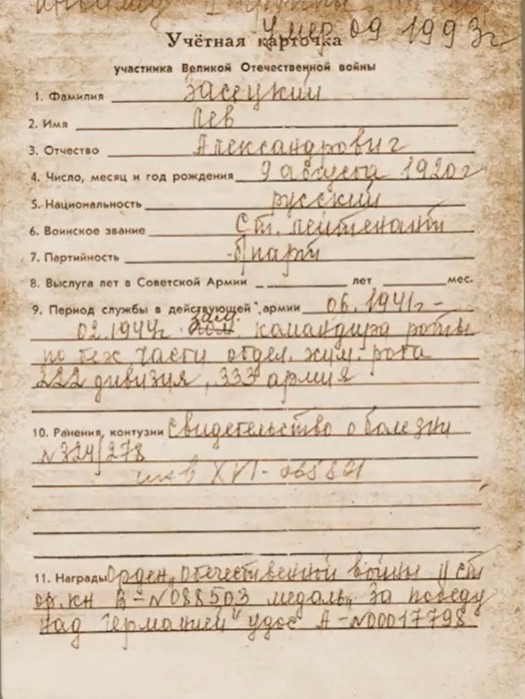 инвалид группы
Умер 09 1993г
Учётная карточка
участника Великой Отечественной войны
1. Фамилия Засецкий
2. Имя Лев
3. Отчество Александрович
4. Число, месяц и год рождения 9 августа 1920г
5. Национальность русский
6. Воинское звание Ст. лейтенант
7. Партийность б/парт
8. Выслуга лет в Советской Армии лет мес.
9. Период службы в действующей армии 06.1941г-
02.1944г. зам. командира роты
по части отдел. хим. рота
222 дивизия, 333 армия
10. Ранения, контузии Свидетельство о болезни
N324/278
11. Награды Орден „Отечественной войны II ст
ор.кн В-N088503 медаль „За победу
над Германией" удос А-N00017798